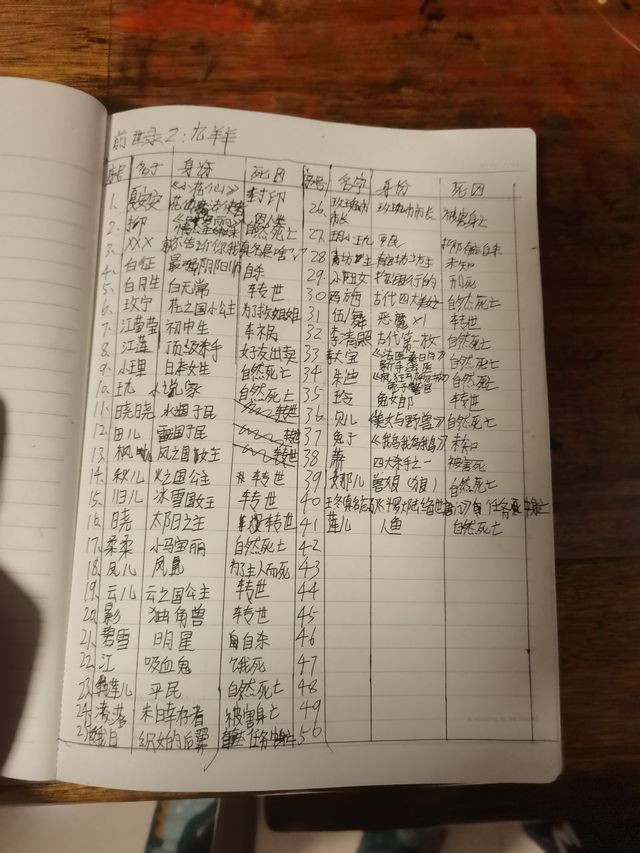 前世录2:九羊羊
序号 名字 身份 死因
1. 夏安安 《小花仙》花仙魔法使者 封印
2. 柳 自然死亡
3. XXX 就不告诉你我真名是啥
4. 白征 最强阴阳师 自杀
5. 白月生 白无常 转世
6. 玫宁 花之国小公主 为了救姐姐
7. 江莹莹 初中生 车祸
8. 江莲 顶级杀手 好友出卖
9. 小理 日本女生 自然死亡
10. 王九 小说家 自然死亡
11. 晓晓 水国子民 转世
12. 田儿 雷国子民 转世
13. 枫 风之国女王 转世
14. 秋儿 火之国公主 转世
15. 归儿 冰雪国女王 转世
16. 日尧 太阳之主 转世
17. 柔柔 小马宝丽 自然死亡
18. 凤儿 凤凰 为主人而死
19. 云儿 云之国公主 转世
20. 影 独角兽 转世
21. 碧雪 明星 自杀
22. 江 吸血鬼 饿死
23. 莲儿 平民 自然死亡
24. 凌落 末日幸存者 被害身亡
25. 日 织女的后翼 任务
序号 名字 身份 死因
26. 玫瑰城市长 玫瑰城市长 被害身亡
27. 玥小九 平民 抑郁自杀
28 坊主 坊主 未知
29. 小妲女 刑死
30 西施 古代四大美女 自然死亡
31 伍舞 恶魔x1 转世
32 李清照 古代第一枚 自然死亡
33 宝 自然死亡
34 朱迪 《疯狂动物城》第一警官 自然死
35 玲 兔女郎 转世
36. 贝儿 《美女与野兽》 自然死亡
37 兔子 未知
38 萧 四大杀手之一 被害死
39 娜儿 警娘(狼) 自然死亡
40 王冬 斗罗大陆 任务
41 莲儿 人鱼 自然死亡
42
43
44
45
46
47
48
49
50